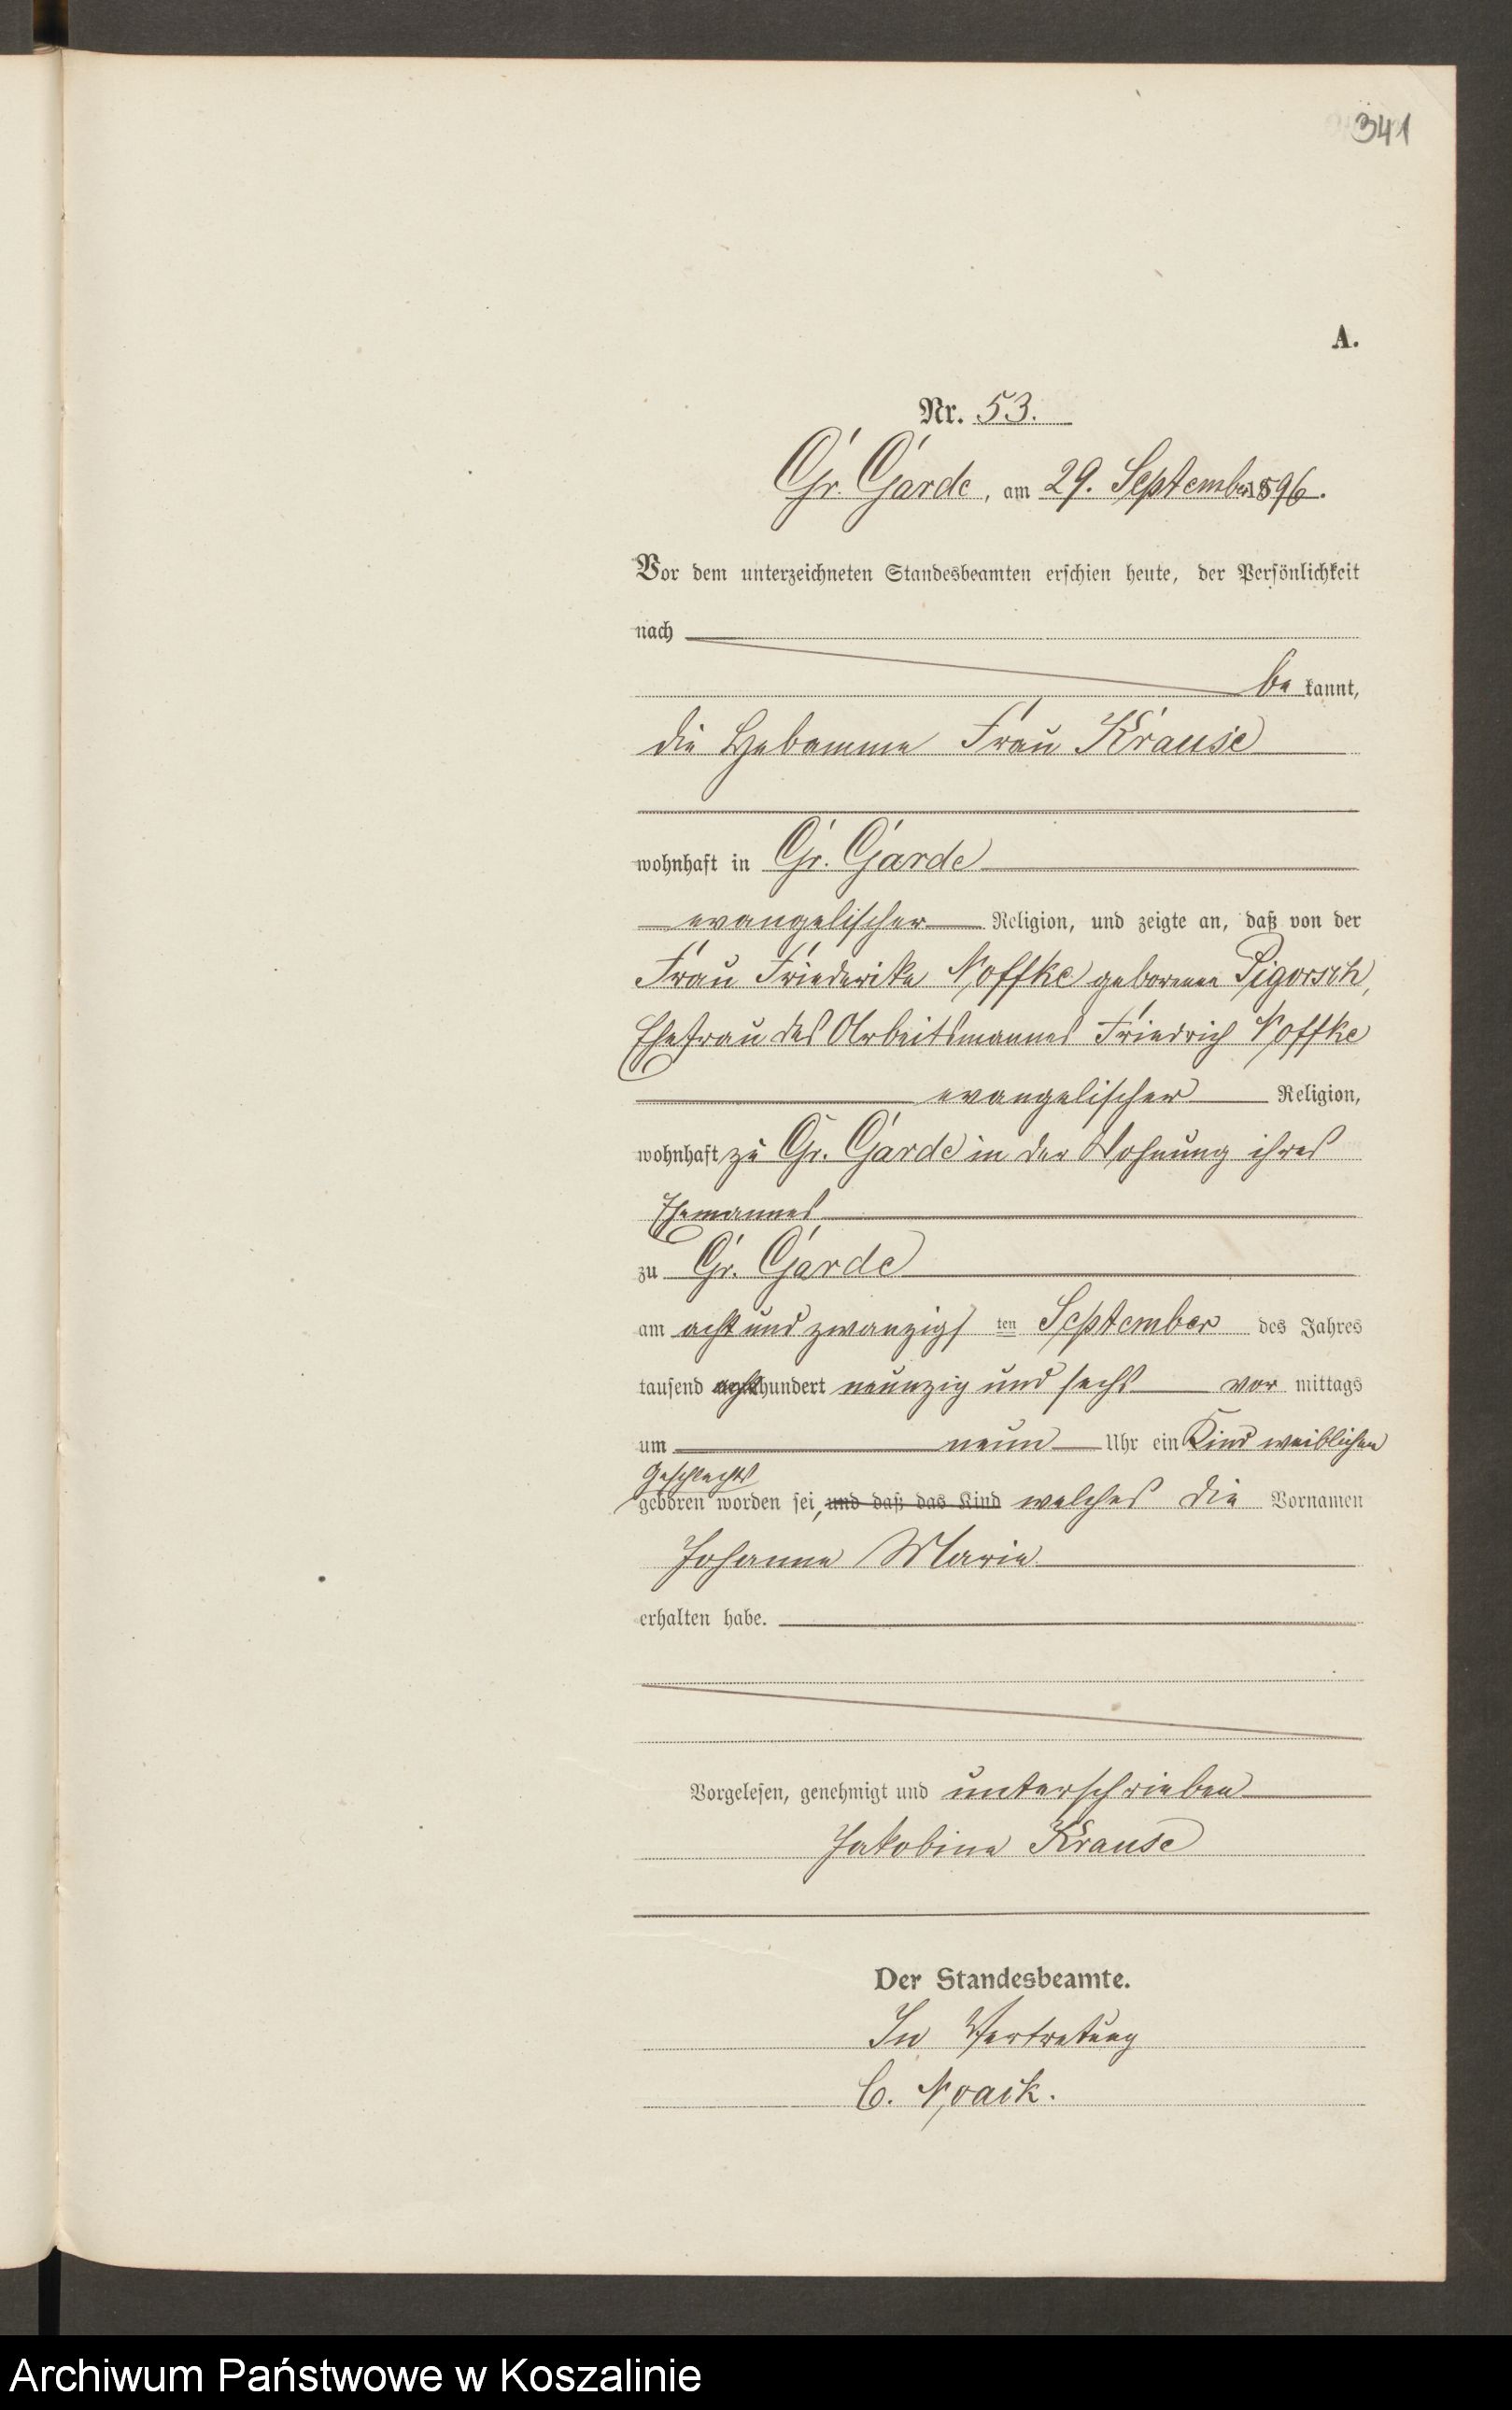 341
A.
Nr. 53.
Gr. Garde, am 29. September 1896.
Vor dem unterzeichneten Standesbeamten erschien heute, der Persönlichkeit
nach
be kannt,
die Hebamme Frau Krause
wohnhaft in Gr. Garde
evangelischer Religion, und zeigte an, daß von der
Frau Friederike Noffke geborenen Pigorsch,
Ehefrau des Arbeitsmannes Friedrich Noffke
evangelischer Religion,
wohnhaft zu Gr. Garde in der Wohnung ihres
Ehemannes
zu Gr. Garde
am acht und zwanzigs ten September des Jahres
tausend acht hundert neunzig und sechs vor mittags
um neun Uhr ein Kind weiblichen
Geschlechts
geboren worden sei, und daß das Kind welches die Vornamen
Johanne Marie
erhalten habe.
Vorgelesen, genehmigt und unterschrieben
Jakobine Krause
Der Standesbeamte.
In Vertretung
C. Noack.
Archiwum Państwowe w Koszalinie